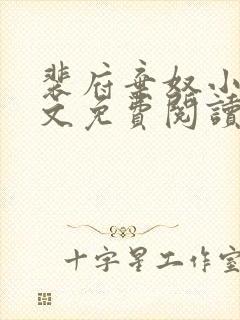 裴府弃奴小
文免費閱讀
十字星工作室